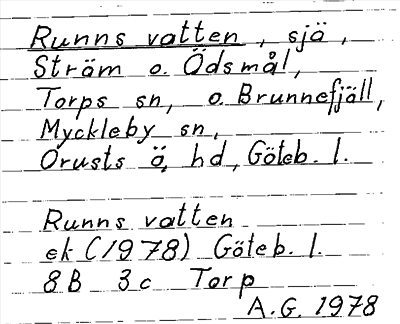 Runns vatten, sjä,
Sträm o. Ödsmål,
Torps sn, o. Brunnefjäll,
Myckleby sn,
Orusts ä, hd, Göteb. l.
Runns vatten
ek (1978) Göteb. l.
8B 3c Torp
A.G. 1978